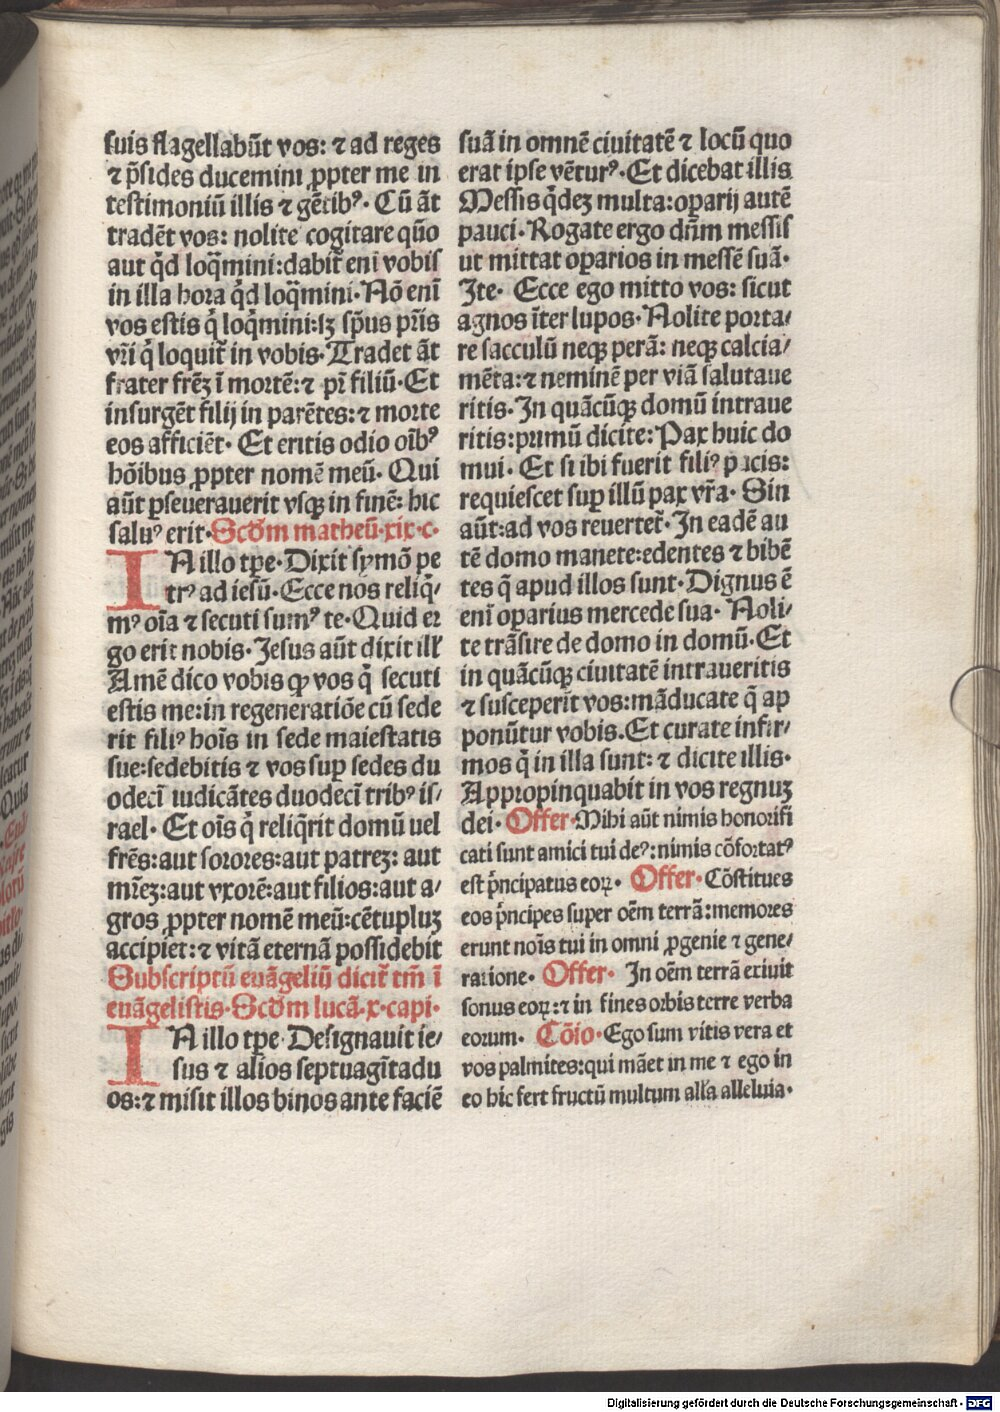 suis flagellabūt vos: ⁊ ad reges
⁊ p̄sides ducemini ꝓpter me in
testimoniū illis ⁊ gētibꝰ. Cū āt
tradēt vos: nolite cogitare quō
aut qd̄ loq̄mini: dabit᷑ eni vobis
in illa hora qd̄ loq̄mini. Nō enī
vos estis q̄ loq̄mini: sꝫ sp̄us pr̄is
vr̄i q̄ loquit᷑ in vobis. Tradet āt
frater frēꝫ ī mortē: ⁊ pr̄ filiū. Et
insurgēt filij in parētes: ⁊ morte
eos afficiēt. Et eritis odio oībꝰ
hōibus ꝓpter nomē meū. Qui
aūt ꝑseuerauerit vsqꝫ in finē: hic
saluꝰ erit. Scd̄m matheū. xix. c.
IN illo tꝑe. Dixit symō pe
trꝰ ad iesū. Ecce nos reliq̄/
mꝰ oīa ⁊ secuti sumꝰ te. Quid er
go erit nobis. Jesus aūt dixit ill᷑
Amē dico vobis ꝙ vos q̄ secuti
estis me: in regeneratiōe cū sede
rit filiꝰ hoīs in sede maiestatis
sue: sedebitis ⁊ vos suꝑ sedes du
odecī iudicātes duodecī tribꝰ is/
rael. Et oīs q̄ reliq̄rit domū uel
frēs: aut sorores: aut patreꝫ: aut
mr̄eꝫ: aut vxorē: aut filios: aut a/
gros ꝓpter nomē meū: cētupluꝫ
accipiet: ⁊ vitā eternā possidebit
Subscriptū euāgeliū dicit᷑ tm̄ ī
euāgelistis. Scd̄m lucā. x. capi.
IN illo tꝑe. Designauit ie/
sus ⁊ alios septuagītadu
os: ⁊ misit illos binos ante faciē
suā in omnē ciuitatē ⁊ locū quo
erat ipse vēturꝰ. Et dicebat illis
Messis q̄deꝫ multa: oꝑarij autē
pauci. Rogate ergo dn̄m messis
ut mittat oꝑarios in messē suā.
Ite. Ecce ego mitto vos: sicut
agnos īter lupos. Nolite porta/
re sacculū neqꝫ perā: neqꝫ calcia/
mēta: ⁊ neminē per viā salutaue
ritis. In quācūqꝫ domū intraue
ritis: primū dicite: Pax huic do
mui. Et si ibi fuerit filiꝰ pacis:
requiescet suꝑ illū pax vr̄a. Sin
aūt: ad vos reuertet᷑. In eadē au
tē domo manete: edentes ⁊ bibē
tes q̄ apud illos sunt. Dignus ē
enī oꝑarius mercede sua. Noli/
te trāsire de domo in domū. Et
in quācūqꝫ ciuitatē intraueritis
⁊ susceperit vos: māducate q̄ ap
ponūtur vobis. Et curate infir/
mos q̄ in illa sunt: ⁊ dicite illis.
Appropinquabit in vos regnuꝫ
dei. Offer. Mihi aūt nimis honorifi
cati sunt amici tui deꝰ: nimis cōfortatꝰ
est p̄ncipatus eoꝝ. Offer. Cōstitues
eos p̄ncipes super oēm terrā: memores
erunt noīs tui in omni ꝓgenie ⁊ gene/
ratione. Offer. In oēm terrā exiuit
sonus eoꝝ: ⁊ in fines orbis terre verba
eorum. Cōio. Ego sum vitis vera et
vos palmites: qui māet in me ⁊ ego in
eo hic fert fructū multum alľa alleluia.
Digitalisierung gefördert durch die Deutsche Forschungsgemeinschaft - DFG